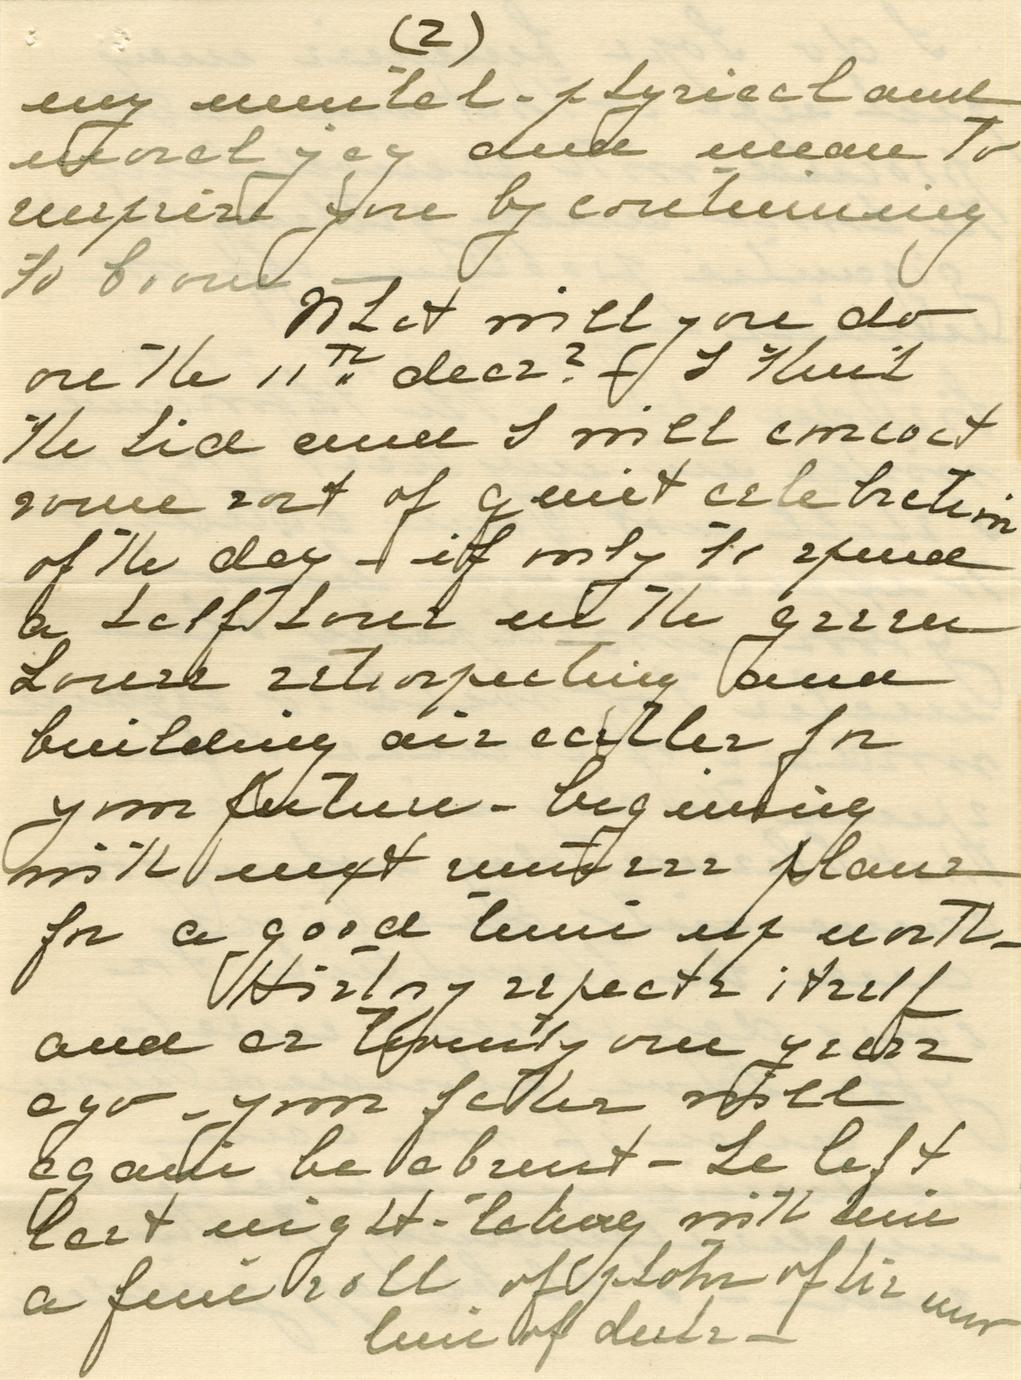 (2)
my mental - physical and
moral joy and mean to
surprise you by continuing
to boom —
What will you do
on the 11th dear? — I think
the kid and I will concoct
some sort of quiet celebration
of the day - if only to spend
a half hour in the green
house retrospecting and
building air castles for
your future - beginning
with next summer plans
for a good time up north -
History repeats itself
and as twenty one years
ago - your father will
again be absent - he left
last night - taking with him
a fine roll of photos of his new
line of desks -